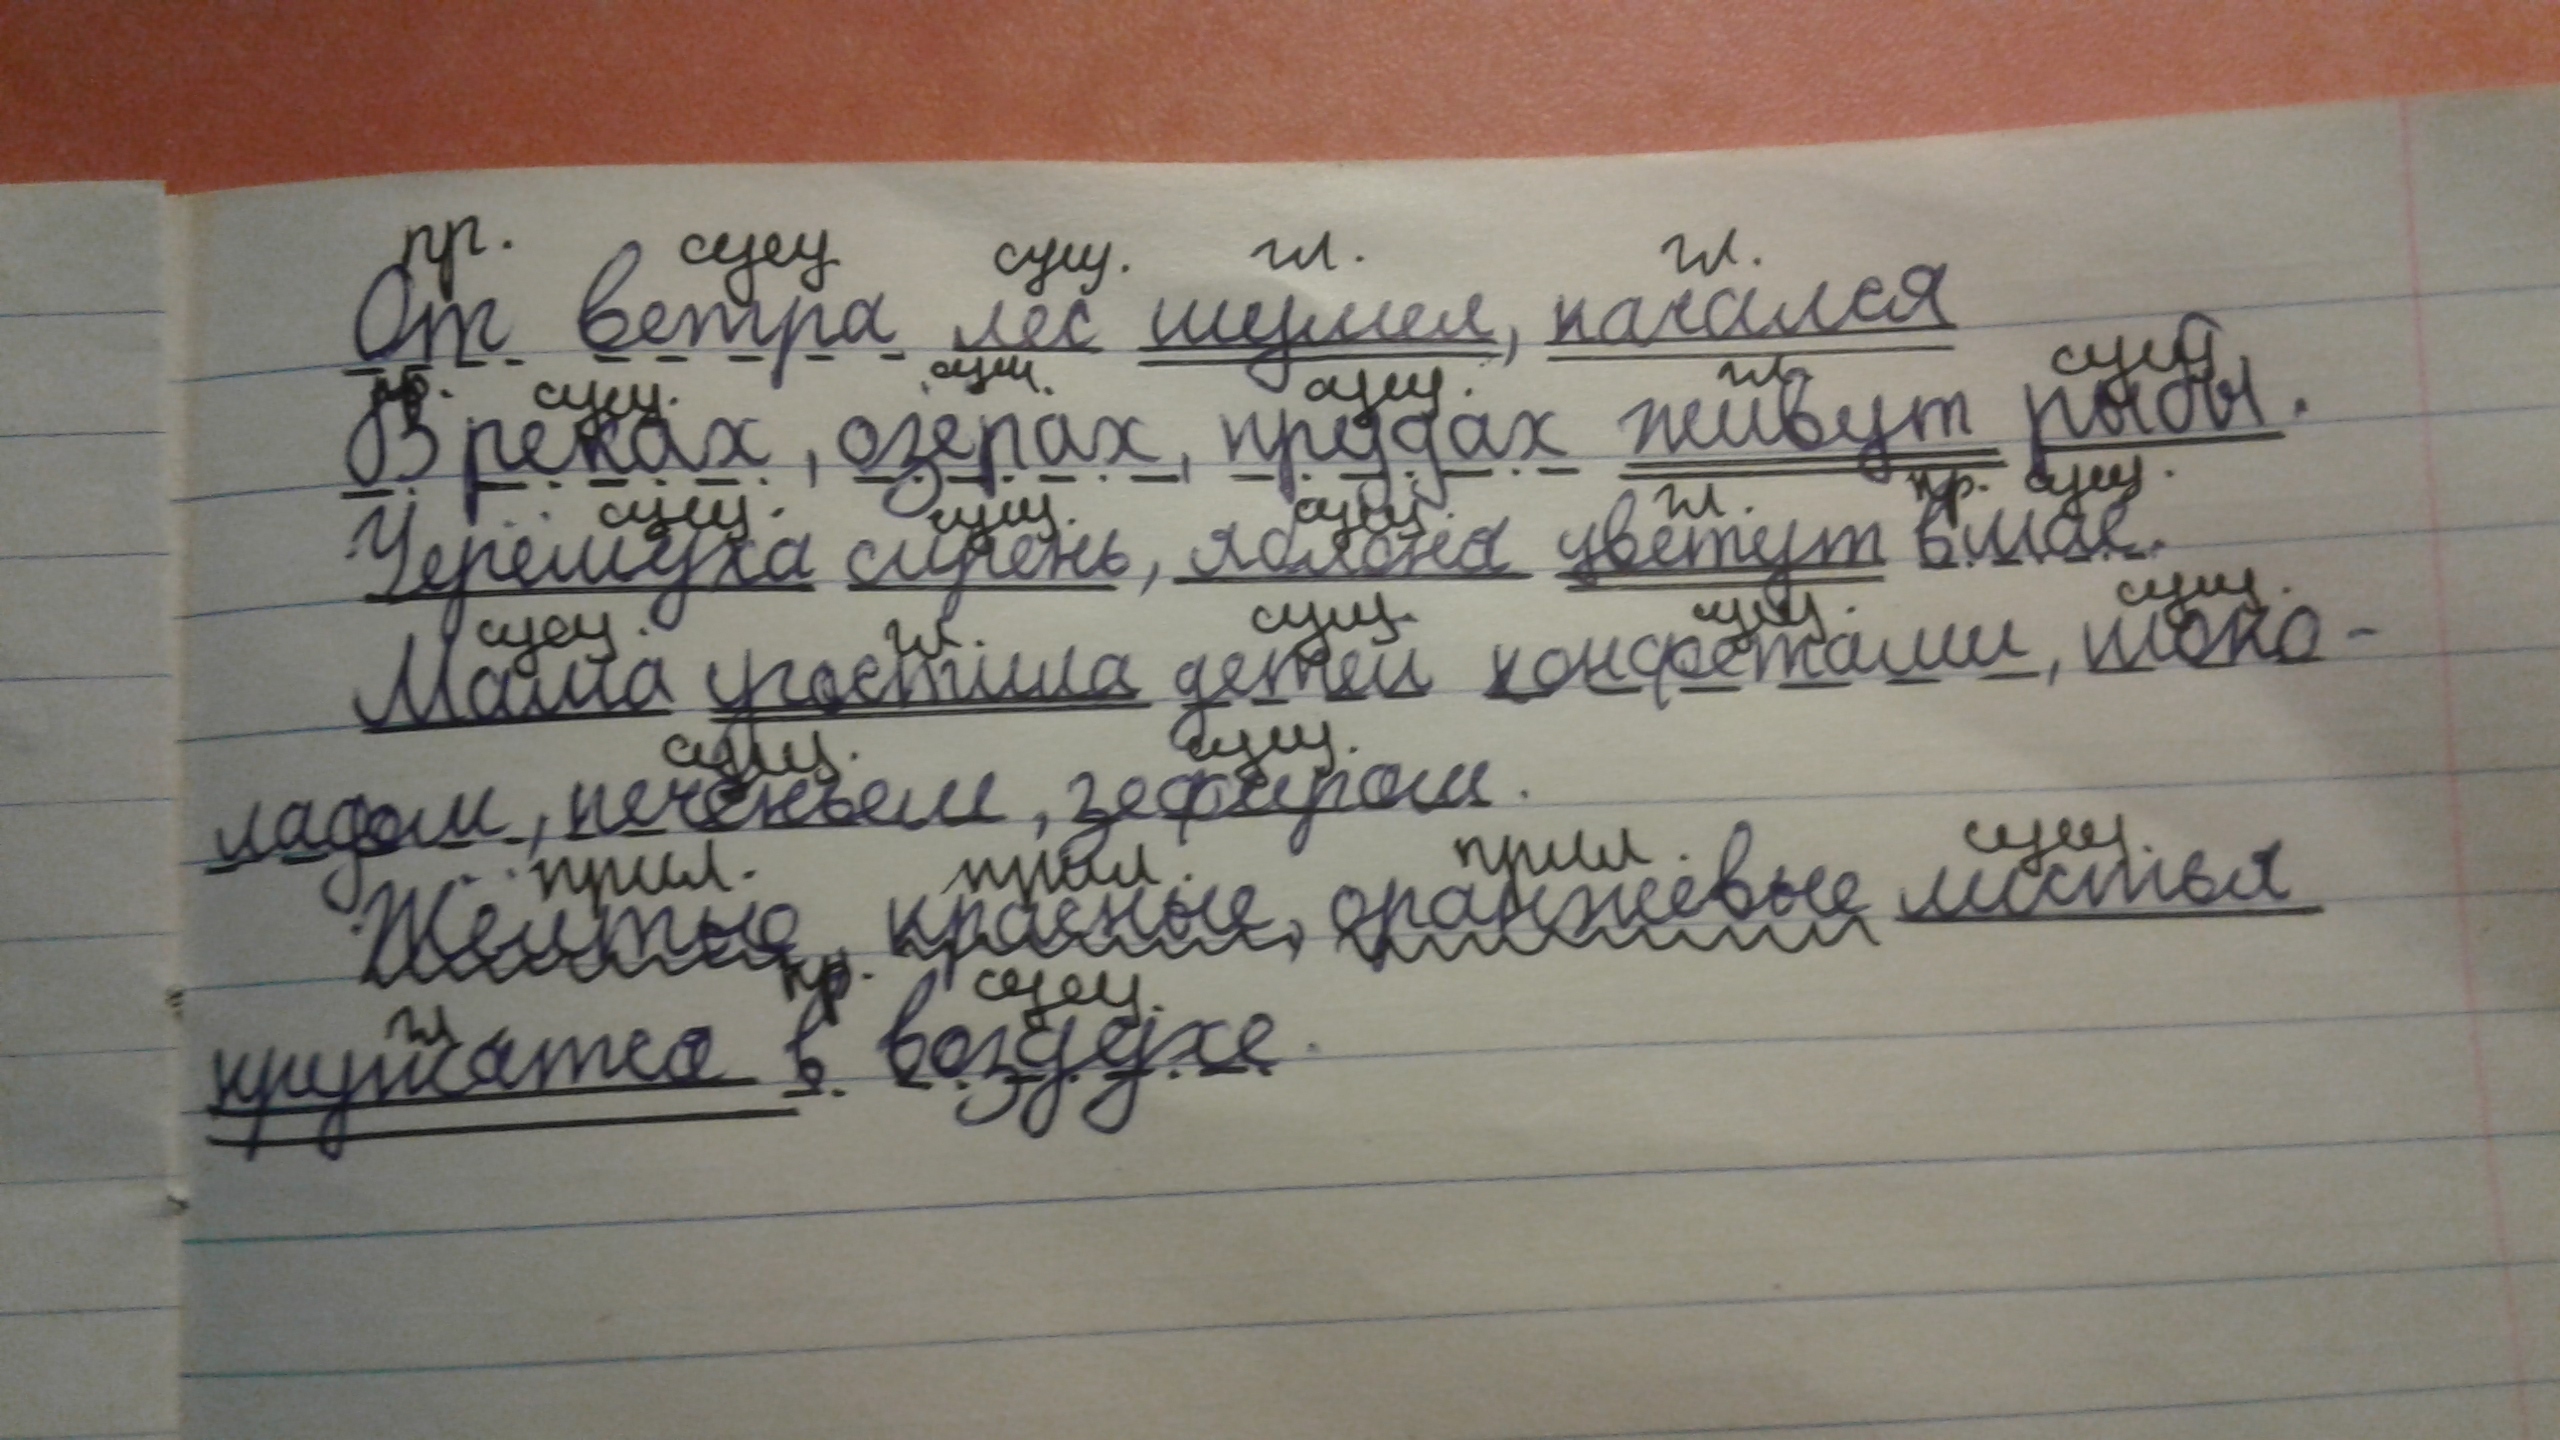 пр. сущ сущ. гл. гл.
От ветра лес шумел, качался
пр. сущ. сущ. сущ. гл. сущ
В реках, озерах, прудах живут рыбы.
сущ. сущ. сущ. гл. пр. сущ.
Черёмуха сирень, яблоня цветут в мае.
сущ. гл. сущ. сущ. сущ.
Мама угостила детей конфетами, шоко-
сущ. сущ.
ладом, печеньем, зефиром.
прил. прил. прил. сущ.
Жёлтые, красные, оранжевые листья
гл пр. сущ.
кружатся в воздухе.